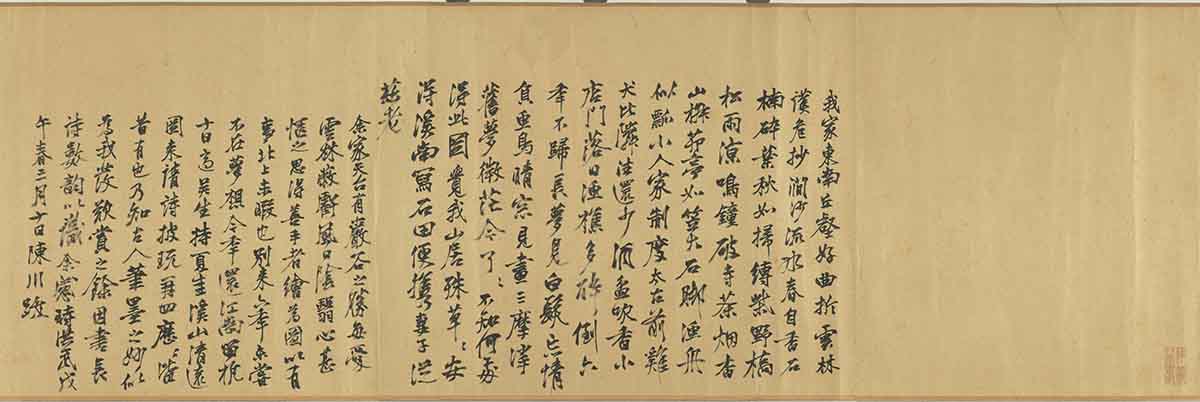 我家東南丘壑好曲折雲林
崖抄澗沙流水春自香石
楠碎葉秋如掃縛柴野橋
松雨涼鳴鐘破寺茶烟香
山探茆亭如笠大石脚漁舟
似瓢小人家制度太古前雞
犬比鄰往還少酒盃吹香小
店門落日漁樵多醉倒六
年不歸長夢見白髮忘情
負魚鳥晴窗見畫三摩挲
舊夢微茫今了々不知何處
得此圖覺我山居殊草々安
得溪南買石田便攜妻子從
老
余家天台有巖谷之勝每愛
雲林收斂風日陰翳心甚
愜之思得善手者繪為圖以有
事北上未暇也別來六年未嘗
不在夢想今年還江南留杭
十日高吳生持夏生溪山清遠
圖來請詩披玩再四歷々皆
昔有也乃知古人筆墨之妙似
為我發歎賞之餘因書長
詩數韻以識余時洪武戊
午春三月十日陳川跋